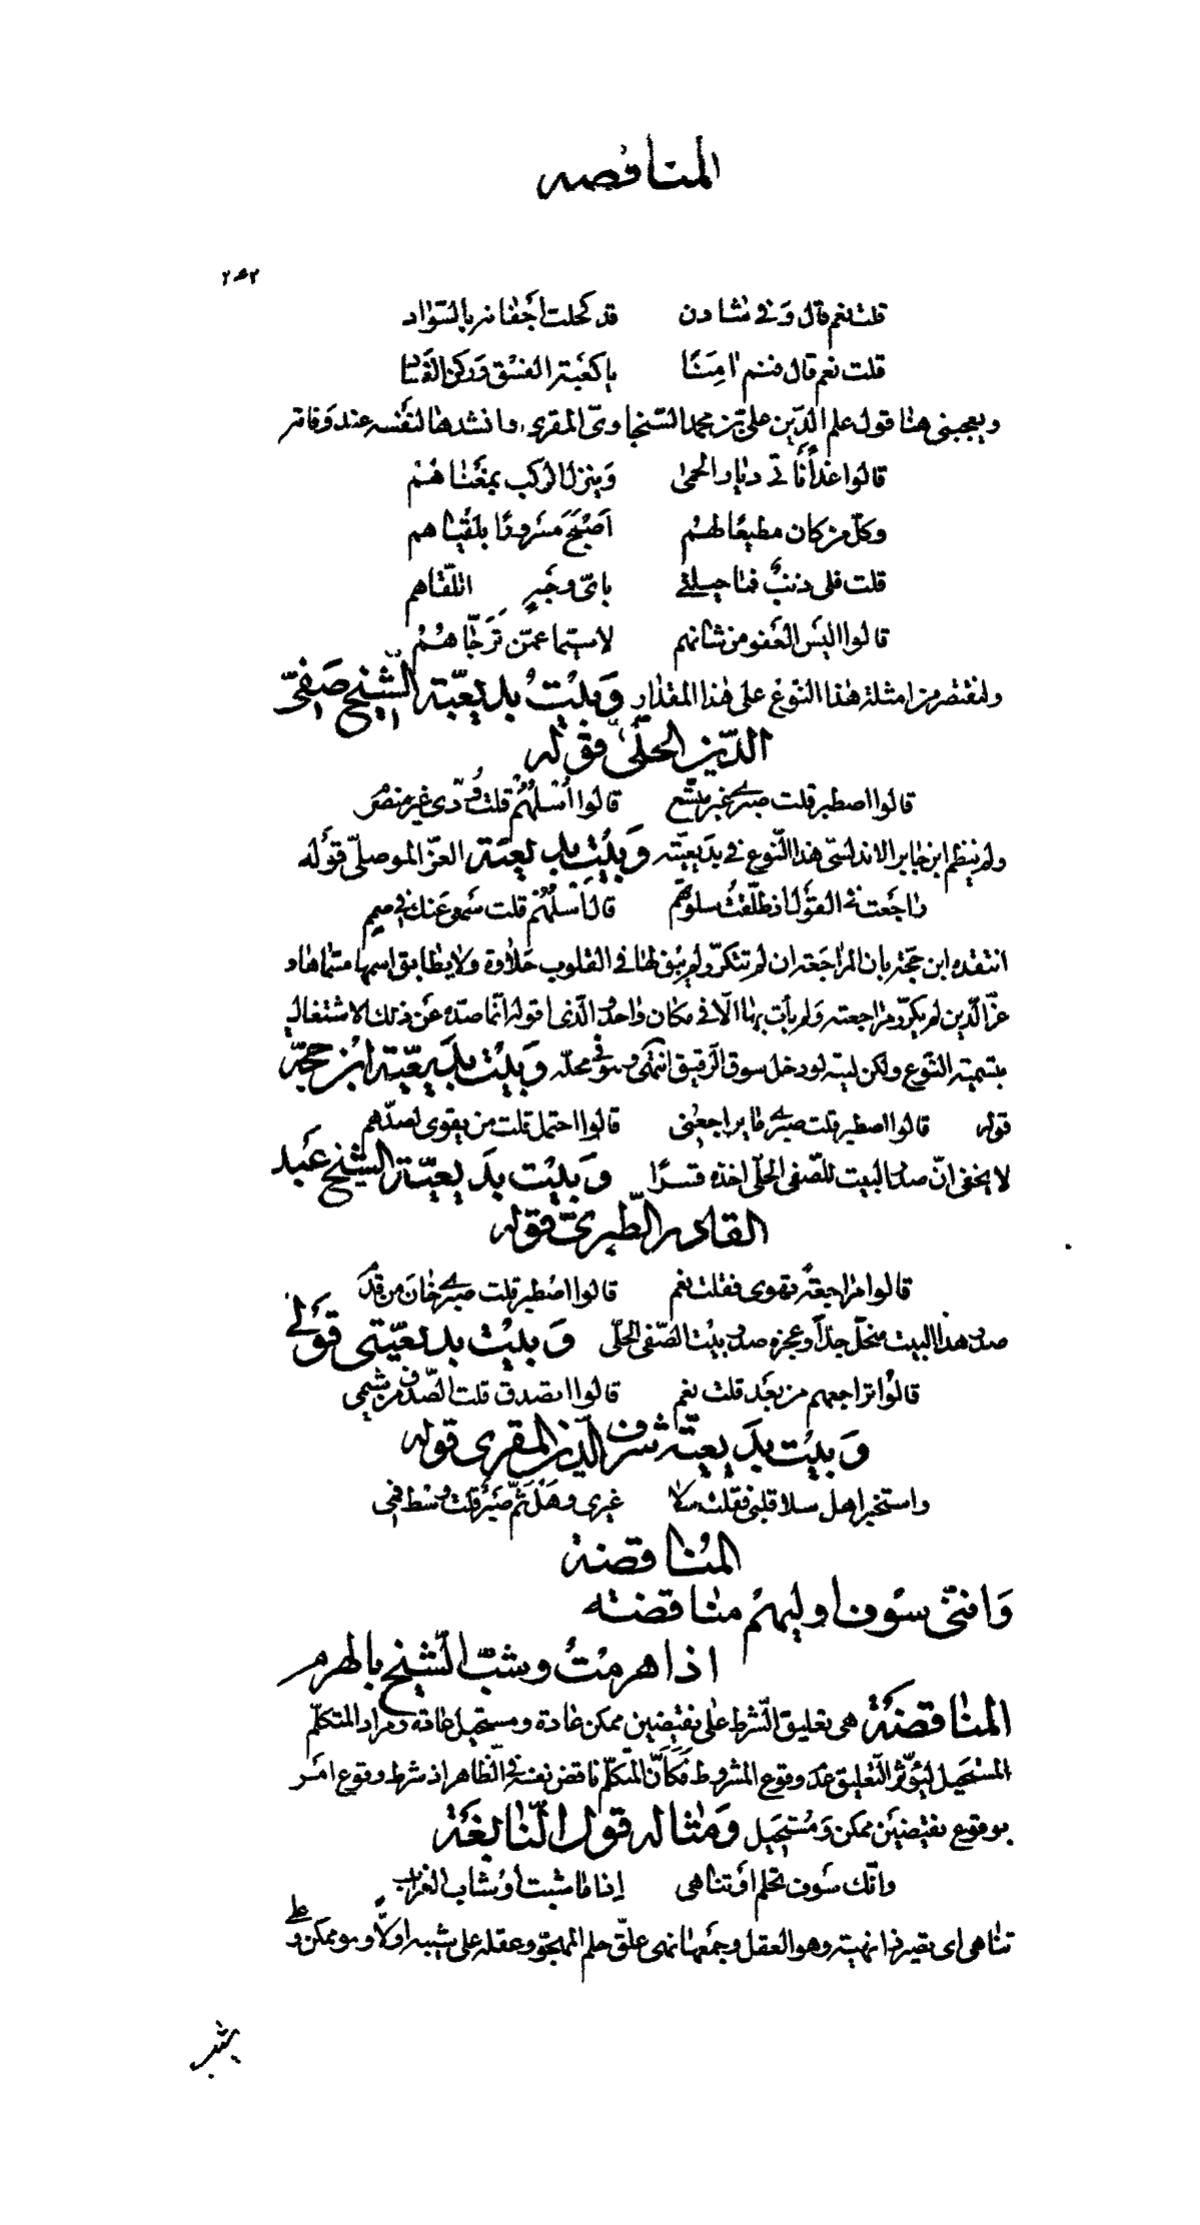 المناقصه
٢٤٢
قلت نعم قال وفي شادن قد كحلت أجفانه بالسواد
قلت نعم قال فنم آمنا يا كعبة الفسق وركن الفساد
ويعجبني هنا قول علم الدّين علي بن محمد السّخاويّ المقري وانشدها لنفسه عند وفاته
قالوا غداً نأتي ديار الحمى وينزل الركب بمغناهم
وكلّ من كان مطيعًا لهم أصبح مسرورًا بلقياهم
قلت فلي ذنبٌ فما حيلتي بايّ وجهٍ اتلقّاهم
قالوا اليس العفو من شانهم لا سيّما عمّن ترجّاهم
ولنقتصر من امثلة هذا النّوع على هذا المقدار وبيت بديعيّة الشّيخ صفيّ
الدّين الحلّي قوله
قالوا اصطبر قلت صبري غير متّسع قالوا أسلهم قلت ودّي غير منصرم
ولم ينظم ابن جابر الاندلسيّ هذا النّوع في بديعيّته وبيت بديعيّة العزّ الموصليّ قوله
راجعت في القول اذ طلّقت سلوتهم قال أسلهم قلت سمعي عنك في صمم
انتقده ابن حجّة بان المراجعة ان لم تتكرّر لم يبق لها في القلوب حلاوة ولا يطابق اسمها مسمّاها و
عزّ الدّين لم يكرّر مراجعته ولم يأت بها الّا في مكان واحد الّذي اقوله انّما صدّه عن ذلك الاشتغال
بتسمية النّوع ولكن ليته لو دخل سوق الرقيق انتهى وهو في محلّه وبيت بديعيّة ابن حجّة
قوله قالوا اصطبر قلت صبري ما يراجعني قالوا احتمل قلت من يقوى لصدّهم
لا يخفى انّ صدر البيت للصّفي الحلّي اخذه قسرًا وبيت بديعيّة الشّيخ عبد
القادر الطّبريّ قوله
قالوا مراجعةً تهوى فقلت نعم قالوا اصطبر قلت صبري خان من قدم
صدر هذا البيت منحلّ جدّاً وعجزه صدر بيت الصّفي الحلّي وبيت بديعيّتي قولي
قالوا تراجعهم من بعد قلت نعم قالوا اتصدق قلت الصّدق من شيمي
وبيت بديعيّة شرف الدّين المقري قوله
واستخبر اهل سلا قلبي فقلت سلا غيري وهل ثمّ صبر قلت وسط فمي
المناقضة
وانني سوف اوليهم مناقضته
اذا هرمت وشبّ الشّيخ بالهرم
المناقضة هي تعليق الشّرط على نقيضين ممكن عادة ومستحيل عادة ومراد المتكلّم
المستحيل ليؤثّر التّعليق عدم وقوع المشروط فكأنّ المتكلّم ناقض نفسه في الظّاهر اذ شرط وقوع امر
بوقوع نقيضين ممكن ومستحيل ومثاله قول النّابغة
وانّك سوف تحلم او تناهى إذا ما شبت او شاب الغراب
تناهى اي تصير ذا نهية وهو العقل وجمعها نهى علّق حلم المهجوّ وعقله على شيبه اولاً وهو ممكن و على
شيب